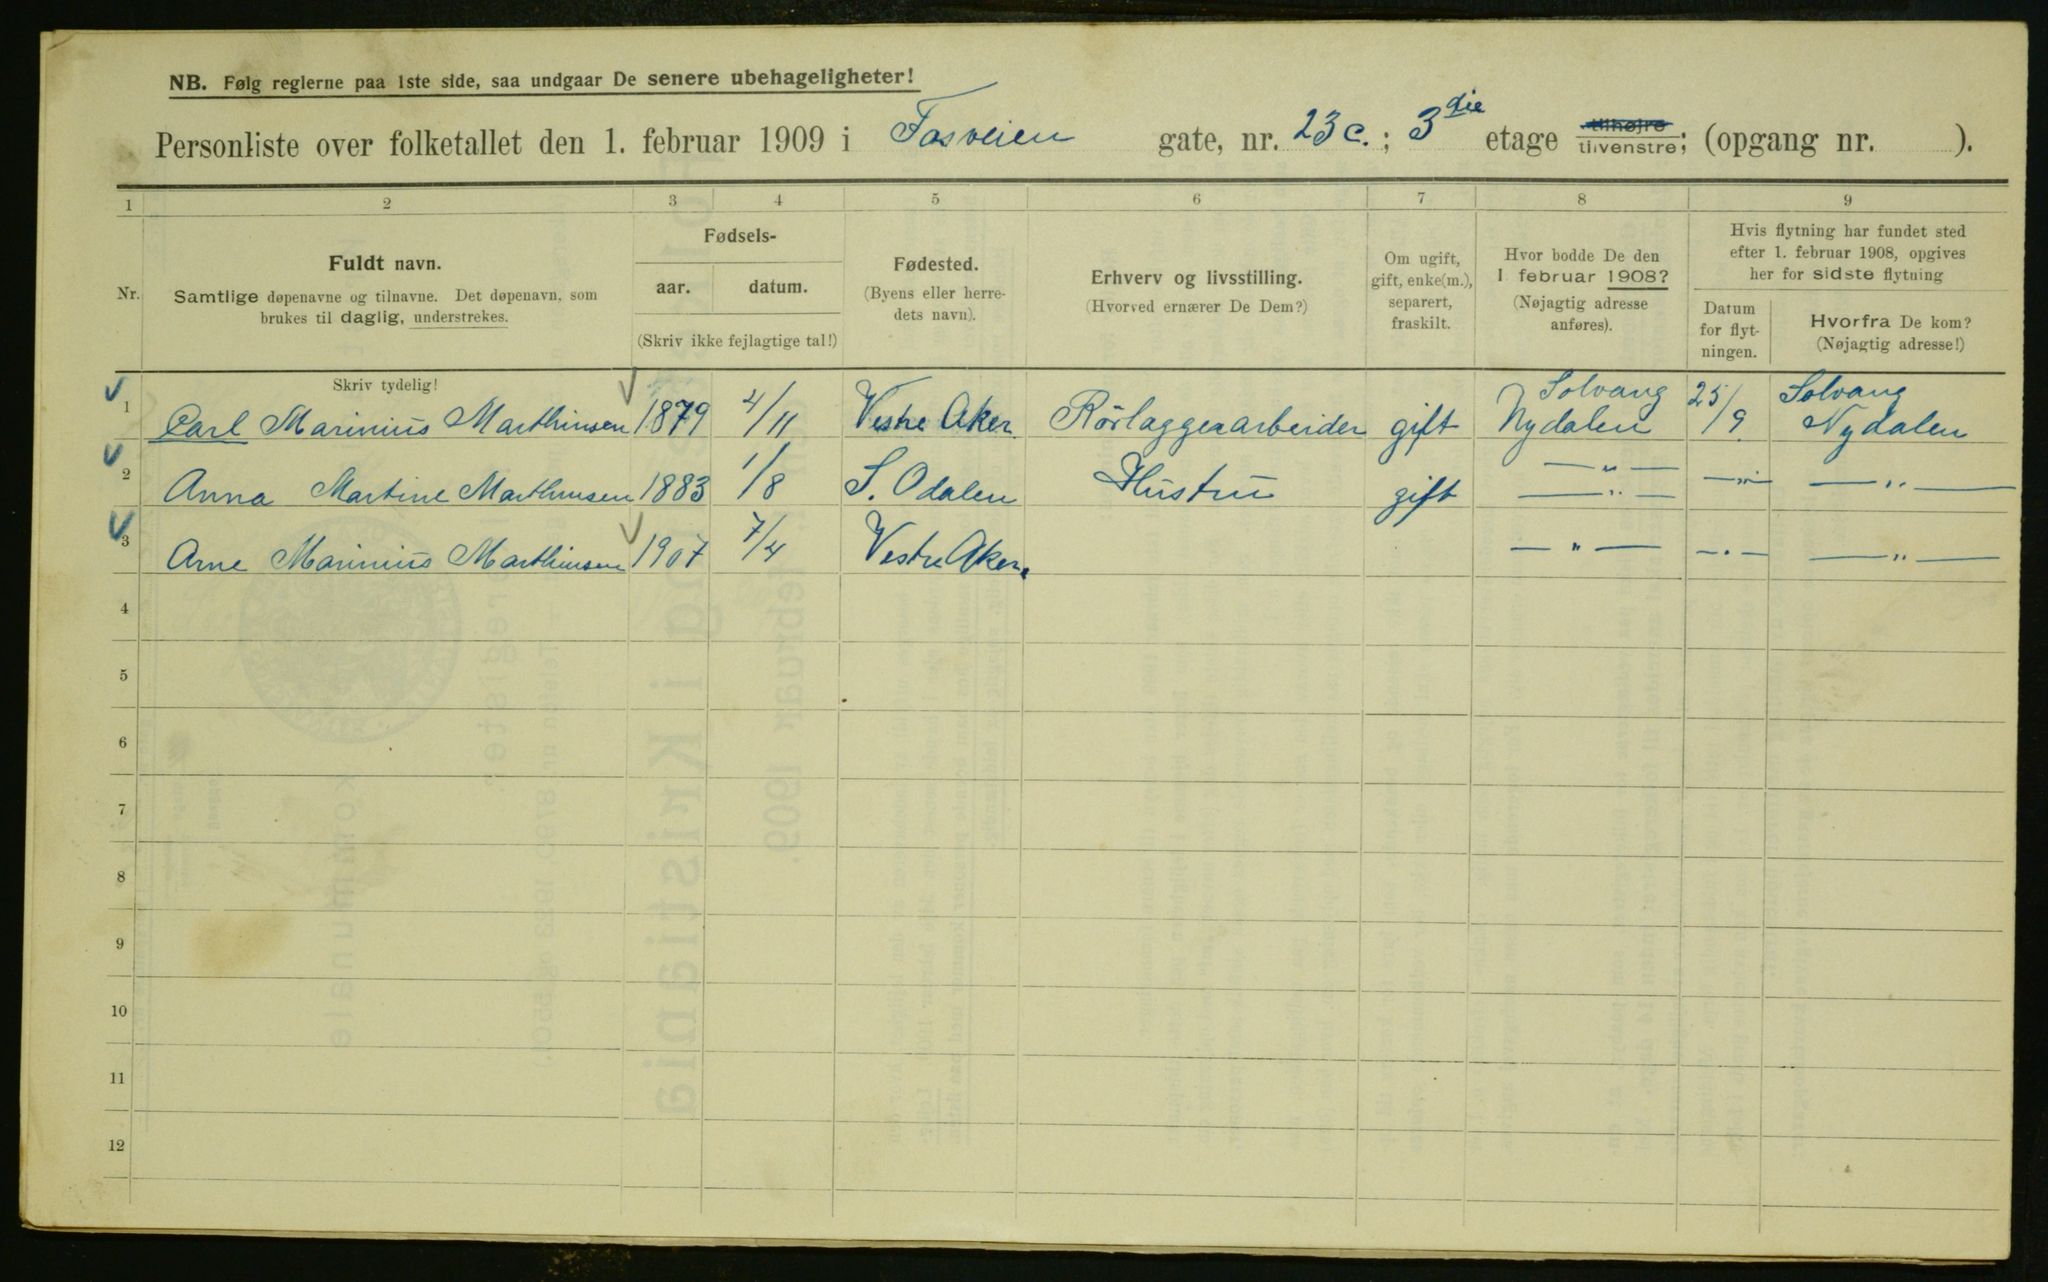 NB. Følg reglerne paa 1ste side, saa undgaar De senere ubehageligheter!
Personliste over folketallet den 1. februar 1909 i Fosveien gate, nr. 23c.; 3die etage tilhøjre tilvenstre; (opgang nr. ).
1 2 3 4 5 6 7 8 9
Nr.
Fuldt navn.
Samtlige døpenavne og tilnavne. Det døpenavn, som
brukes til daglig, understrekes.
Fødsels-
aar. datum.
(Skriv ikke fejlagtige tal!)
Fødested.
(Byens eller herre-
dets navn).
Erhverv og livsstilling.
(Hvorved ernærer De Dem?)
Om ugift,
gift, enke(m.),
separert,
fraskilt.
Hvor bodde De den
1. februar 1908?
(Nøjagtig adresse
anføres).
Hvis flytning har fundet sted
efter 1. februar 1908, opgives
her for sidste flytning
Datum
for flyt-
ningen.
Hvorfra De kom?
(Nøjagtig adresse!)
Skriv tydelig!
1 Carl Marinius Marthinsen 1879 4/11 Vestre Aker Rörlæggerarbeider gift Solvang Nydalen 25/9 Solvang Nydalen
2 Anna Martine Marthinsen 1883 1/8 S. Odalen Hustru gift — " — — " — — " — — " —
3 Arne Marinius Marthinsen 1907 7/4 Vestre Aker. — " — — " — — " —
4
5
6
7
8
9
10
11
12